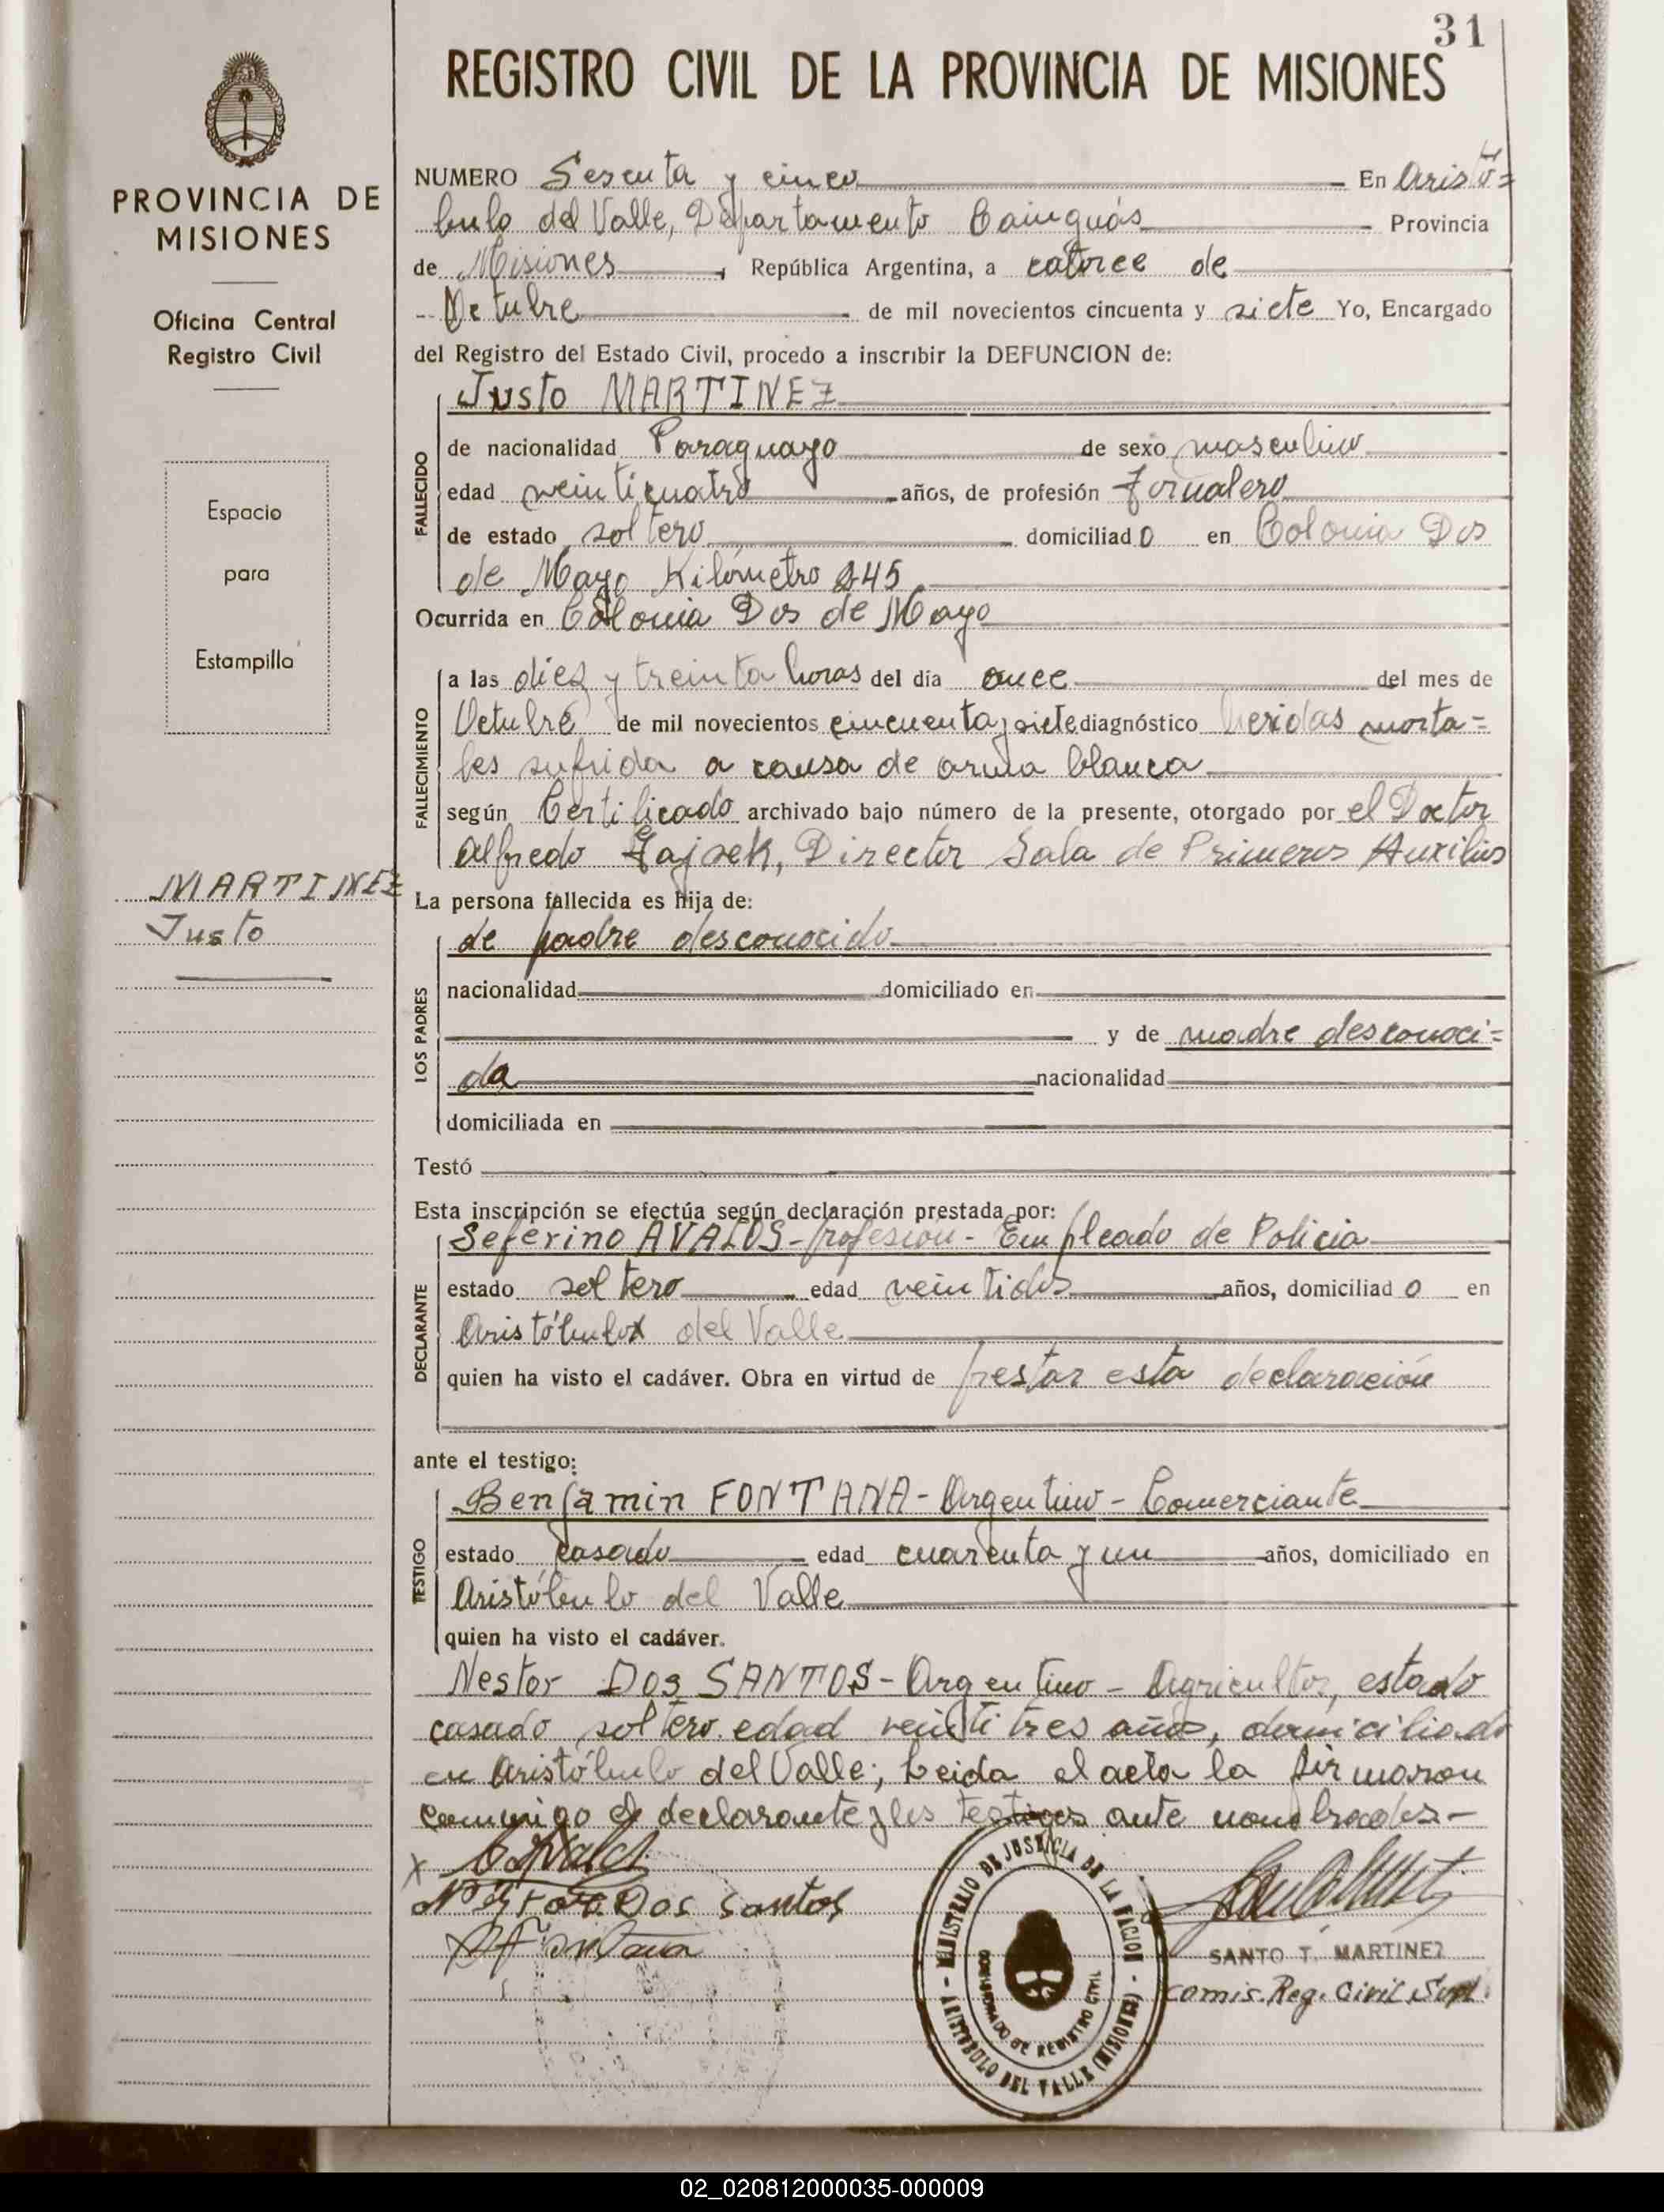 31
REGISTRO CIVIL DE LA PROVINCIA DE MISIONES
PROVINCIA DE
MISIONES
Oficina Central
Registro Civil
Espacio
para
Estampilla
MARTINEZ
Justo
NUMERO Sesenta y cinco En Aristó=
bulo del Valle, Departamento Cainguás Provincia
de Misiones, República Argentina, a catorce de
Octubre de mil novecientos cincuenta y siete Yo, Encargado
del Registro del Estado Civil, procedo a inscribir la DEFUNCION de:
Justo MARTINEZ
FALLECIDO
de nacionalidad Paraguayo de sexo masculino
edad veinticuatro años, de profesión Jornalero
de estado soltero domiciliado en Colonia Dos
de Mayo Kilómetro 245
Ocurrida en Colonia Dos de Mayo
FALLECIMIENTO
a las diez y treinta horas del día once del mes de
Octubre de mil novecientos cincuenta y siete diagnóstico heridas morta=
les sufrida a causa de arma blanca
según Certificado archivado bajo número de la presente, otorgado por el Doctor
Alfredo Zajsek, Director Sala de Primeros Auxilios
La persona fallecida es hija de:
LOS PADRES
de padre desconocido
nacionalidad domiciliado en
y de madre desconoci=
da nacionalidad
domiciliada en
Testó
Esta inscripción se efectúa según declaración prestada por:
DECLARANTE
Seferino AVALOS - profesión - Empleado de Policia
estado soltero edad veintidos años, domiciliado en
Aristóbulo del Valle
quien ha visto el cadáver. Obra en virtud de prestar esta declaración
ante el testigo:
TESTIGO
Benjamin FONTANA - Argentino - Comerciante
estado casado edad cuarenta y un años, domiciliado en
Aristóbulo del Valle
quien ha visto el cadáver.
Nestor Dos SANTOS - Argentino - Agricultor, estado
casado soltero edad veintitres años, domiciliado
en Aristóbulo del Valle; Leida el acta la firmaron
conmigo el declarante y los testigos ante nombrados -
Nestor Dos Santos
MINISTERIO DE JUSTICIA DE LA NACION - ARISTOBULO DEL VALLE (MISIONES) -
DE REGISTRO CIVIL
SANTO T. MARTINEZ
comis. Reg. Civil Supl.
02_020812000035-000009